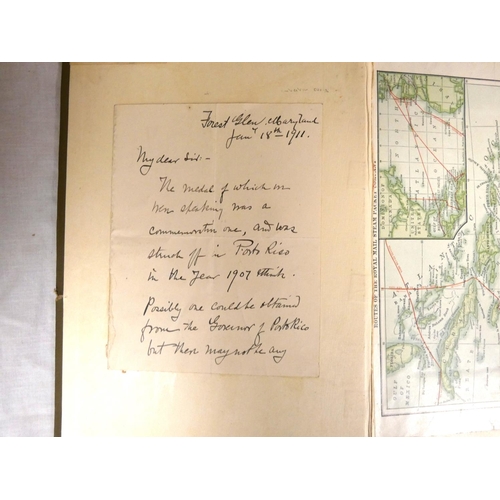 Forest Glen, Maryland
Jany 18th 1911.
My dear Sir:-
The medal of which we
were speaking was a
commemorative one, and was
struck off in Porto Rico
in the year 1907 I think.
Possibly one could be obtained
from the Governor of Porto Rico
but there may not be any
ROUTES OF THE ROYAL MAIL STEAM PACKET COMPANY